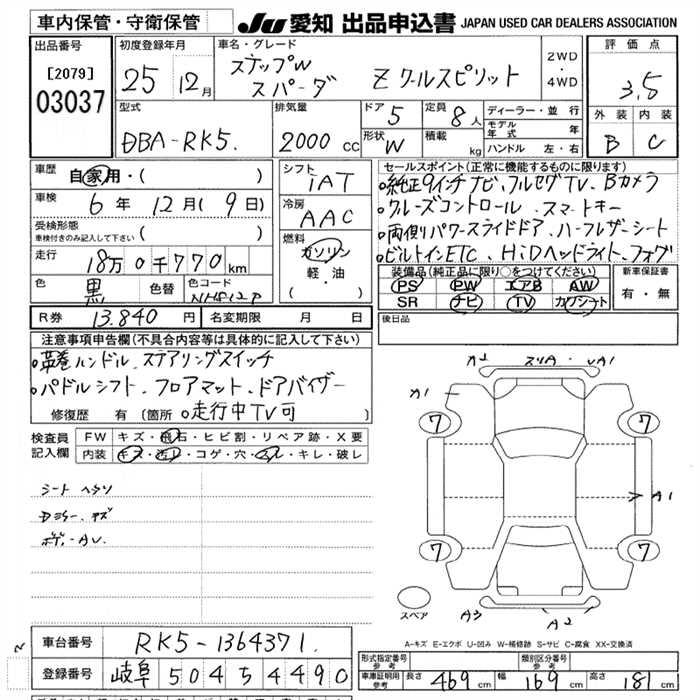 車内保管・守衛保管 JU 愛知 出品申込書 JAPAN USED CAR DEALERS ASSOCIATION
出品番号 初度登録年月 車名・グレード 2WD・4WD 評価点
[2079] 25 12月 ステップW スパーダ Z クールスピリット 3.5
03037 外装 内装
型式 排気量 ドア 5 定員 8人 ディーラー・並行 B C
DBA-RK5. 2000cc 形状 W 積載 kg モデル年式 年
ハンドル 左・右
車歴 自家用・( ) シフト iAT セールスポイント(正常に機能するものに限ります)
車検 6年 12月(9日) 冷房 AAC 純正9インチナビ フルセグTV、Bカメラ
受検形態 車検付きのみ記入して下さい( ) クルーズコントロール、スマートキー
走行 18万0千770km 燃料 ガソリン 軽・油 ( ) 両側パワースライドドア、ハーフレザーシート
ビルトインETC、HiDヘッドライト、フォグ
色 黒 色替 色コード 装備品(純正品に限り○をつけてください) 新車保証書
PS PW エアB AW 有・無
SR ナビ TV カワシート
R券 13.840円 名変期限 月 日 後日品
注意事項申告欄(不具合内容等は具体的に記入して下さい)
革巻ハンドル、ステアリングスイッチ
パドルシフト、フロアマット、ドアバイザー
修復歴 有 (箇所 走行中TV可
検査員記入欄 FW キズ・飛石・ヒビ割・リペア跡・X要
内装 キズ・汚レ・コゲ・穴・スレ・キレ・破レ
シート ヘタリ
ミラー キズ
ボディ
A1
7 7
A1
7 7
スペア A3 A2
A-キズ E-エクボ U-凹み W-補修跡 S-サビ C-腐食 XX-交換済
車台番号 RK5-1364371.
登録番号 岐阜 504 5 4490
形式指定番号 類別区分番号
車庫証明用参考 長さ 469cm 幅 169cm 高さ 181cm